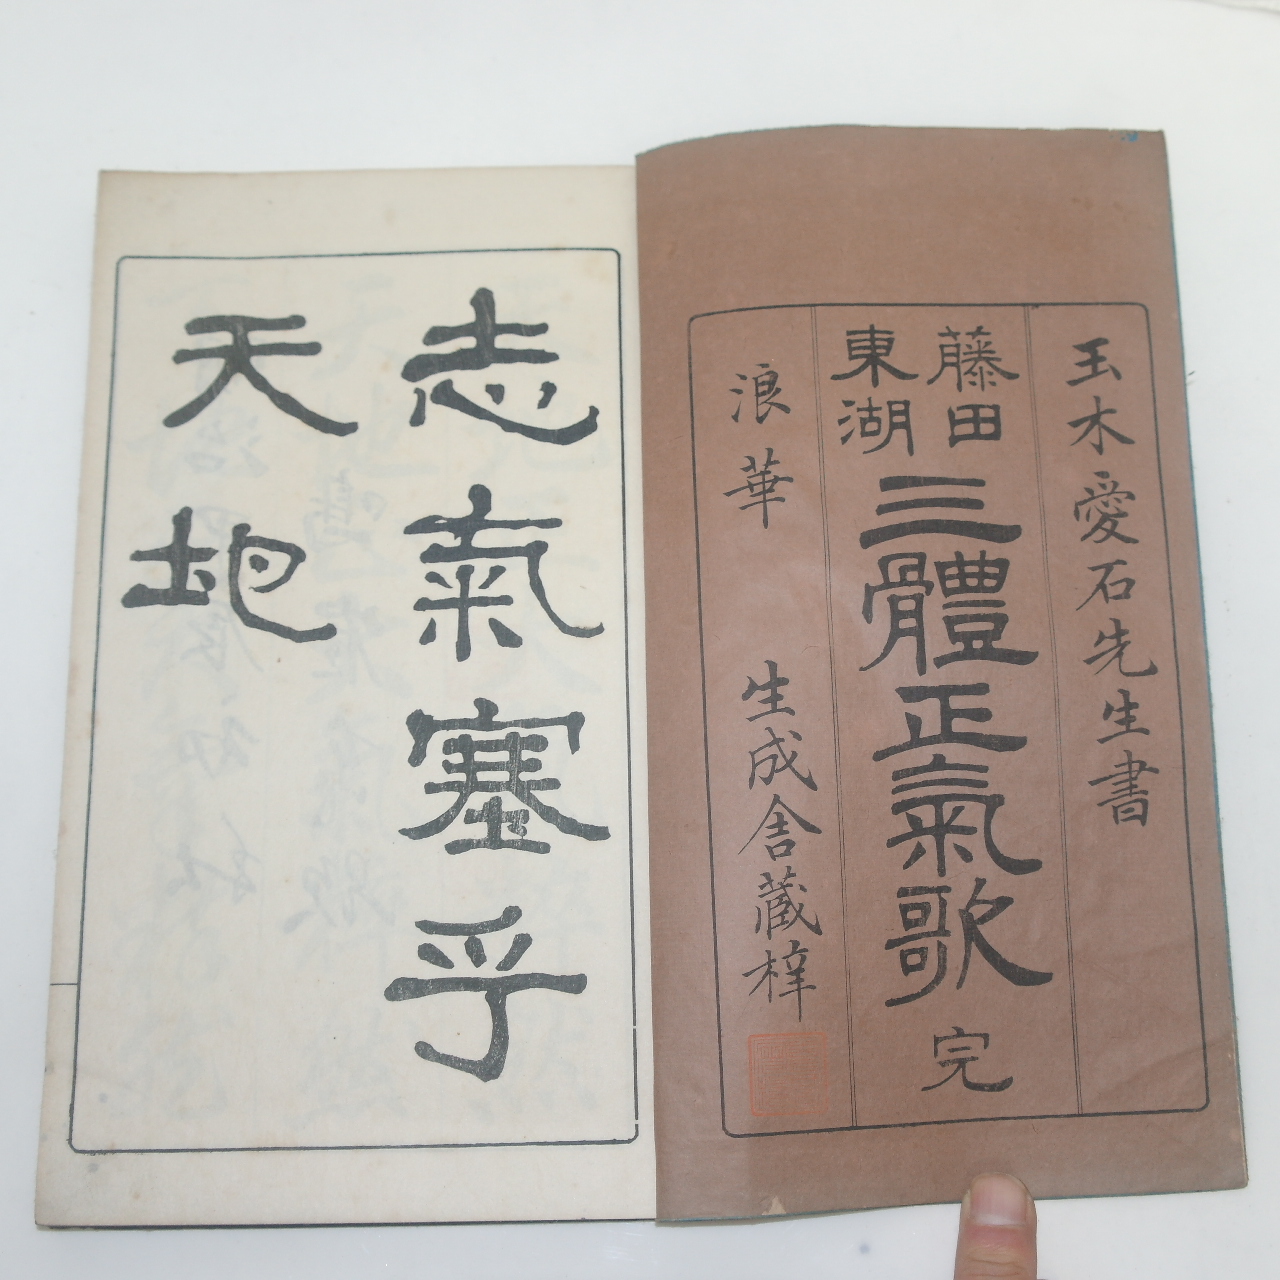 玉木愛石先生書
藤田東湖三體正氣歌 完
浪華 生成舍藏梓
志氣塞乎
天地